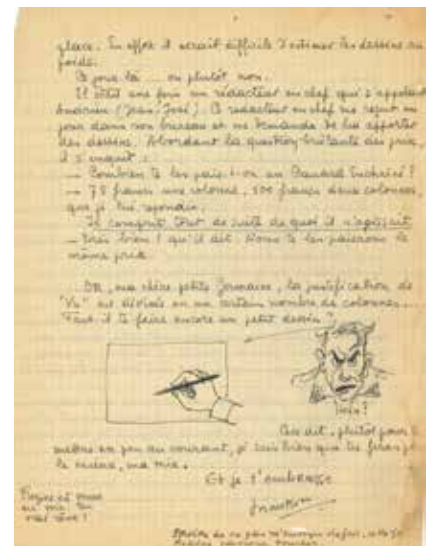 place. En effet il serait difficile d'estimer les dessins au
poids.
Ce jour là ... ou plutôt non.
Il était une fois un rédacteur en chef qui s'appelait
(Jean José). Ce rédacteur en chef me reçut un
jour dans son bureau et me demanda de lui apporter
des dessins. Abordant la question brûlante du prix,
il s'enquit :
— Combien te les paie-t-on au Canard Enchaîné ?
— 75 francs une colonne, 100 francs deux colonnes,
que je lui répondis.
Il comprit tout de suite de quoi il s'agissait
— Très bien ! qu'il dit. Nous te les paierons le
même prix.
OR, ma chère petite Germaine, la justification de
"Vu" est divisée en un certain nombre de colonnes...
Faut-il te faire encore un petit dessin ?
Ceci dit, plutôt pour te
mettre un peu au courant, je sais bien que tu feras
le mieux, ma mie.
Et je t'embrasse